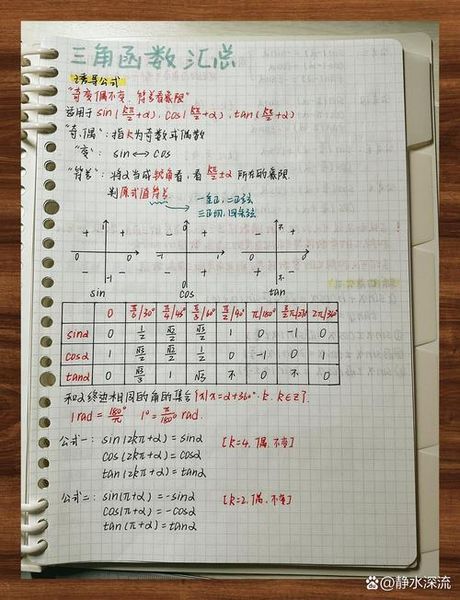 三角函数汇总
诱导公式
"奇变偶不变，符号看象限"
适用于 sin(kπ/2+α), cos(kπ/2+α), tan(kπ/2+α)
"奇、偶"：指k为奇数或偶数
"变"：sin↔cos
"符号"：将α当成锐角看，看kπ/2±α所在的象限
判原式值符号
一全正，二正弦
三正切，四余弦
+ + 0 0 - -1
sin
0 + -1 0 - +
cos
- + 0 0 + -
tan
0 π/6/30° π/4/45° π/3/60° π/2/90° π/180° 2π/360°
sinα 0 1/2 √2/2 √3/2 1 0 -1 0
cosα 1 √3/2 √2/2 1/2 0 -1 0 1
tanα 0 √3/3 1 √3 不 0 不 0
和α终边相同的角的集合{x|x=α+360°·k, k∈Z}.
1 rad = 180°/π 1° = π/180° rad.
公式一：sin(2kπ+α)=sinα [k=4, 偶, 不变]
cos(2kπ+α)=cosα
tan(2kπ+α)=tanα
公式二：sin(π+α)=-sinα [k=2, 偶, 不变]
cos(π+α)=-cosα
tan(π+α)=tanα
百家号/静水深流